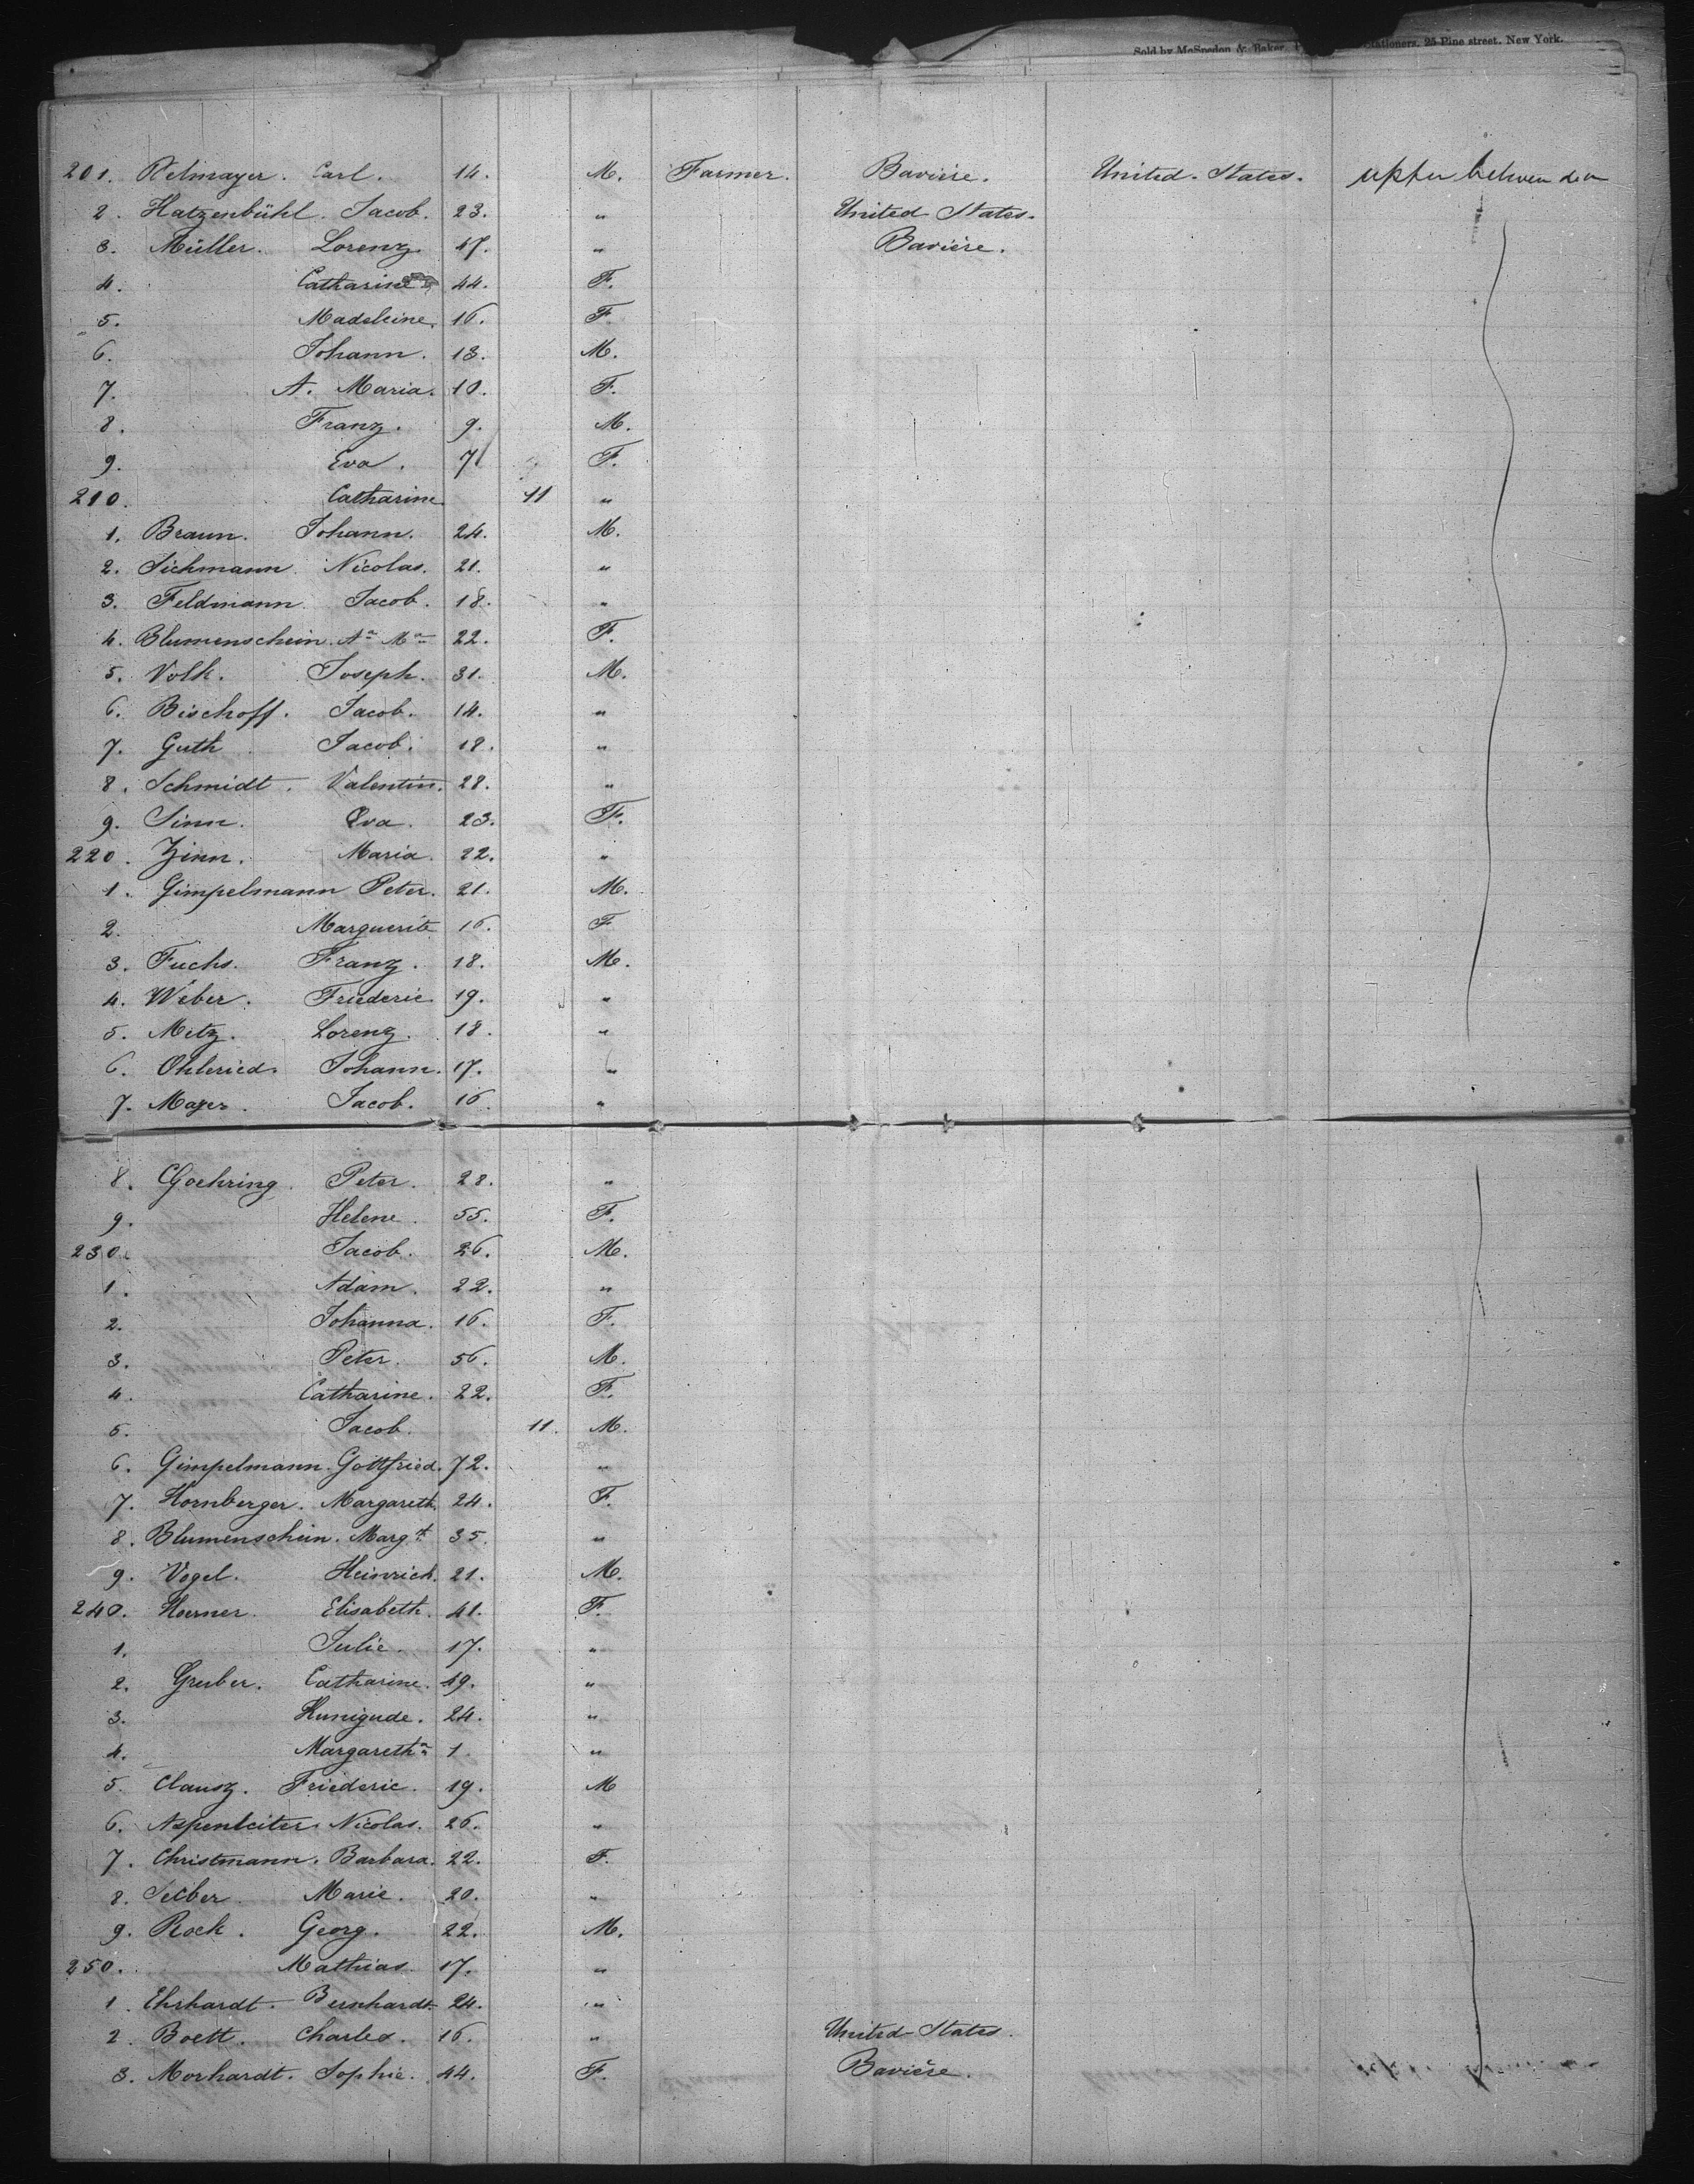 Sold by McSpedon & Baker, Stationers, 25 Pine street, New York.
201. Relmayer. Carl. 14. M. Farmer. Bavière. United States. upper between deck
2. Hatzenbühl. Jacob. 23. " United States.
3. Müller. Lorenz. 47. " Bavière.
4. Catharine 44. F.
5. Madeleine. 16. F.
6. Johann. 13. M.
7. A. Maria. 10. F.
8. Franz. 9. M.
9. Eva. 7 F.
210. Catharine 11 "
1. Braun. Johann. 24. M.
2. Sichmann Nicolas. 21. "
3. Feldmann Jacob. 18. "
4. Blumenschein. Aª Mª 22. F.
5. Volk. Joseph. 31. M.
6. Bischoff. Jacob. 14. "
7. Guth Jacob. 18. "
8. Schmidt. Valentin. 28. "
9. Sinn. Eva. 23. F.
220. Zinn. Maria. 22. "
1. Gimpelmann Peter. 21. M.
2. Marguerite 16. F
3. Fuchs. Franz. 18. M.
4. Weber. Friederic 19. "
5. Metz. Lorenz. 18. "
6. Ohleried. Johann. 17. "
7. Mayer. Jacob. 16. "
8. Goehring. Peter. 28. "
9. Helene. 55. F.
230. Jacob. 26. M.
1. Adam. 22. "
2. Johanna. 16. F.
3. Peter. 56. M.
4. Catharine. 22. F.
5. Jacob. 11. M.
6. Gimpelmann. Gottfried. 72. "
7. Hornberger. Margareth. 24. F.
8. Blumenschein. Margt 35. "
9. Vogel. Heinrich. 21. M.
240. Hoerner. Elisabeth. 41. F.
1. Julie. 17. "
2. Gruber. Catharine. 49. "
3. Kunigude. 24. "
4. Margaretha 1. "
5. Clausz. Friederic. 19. M
6. Aspenleiter. Nicolas. 26. "
7. Christmann. Barbara. 22. F.
8. Seiber Marie. 20. "
9. Rock. Georg. 22. M.
250. Mathias. 17. "
1. Ehrhardt. Bernhardt 24. "
2. Boett. Charles. 16. " United States.
3. Morhardt. Sophie. 44. F. Bavière.